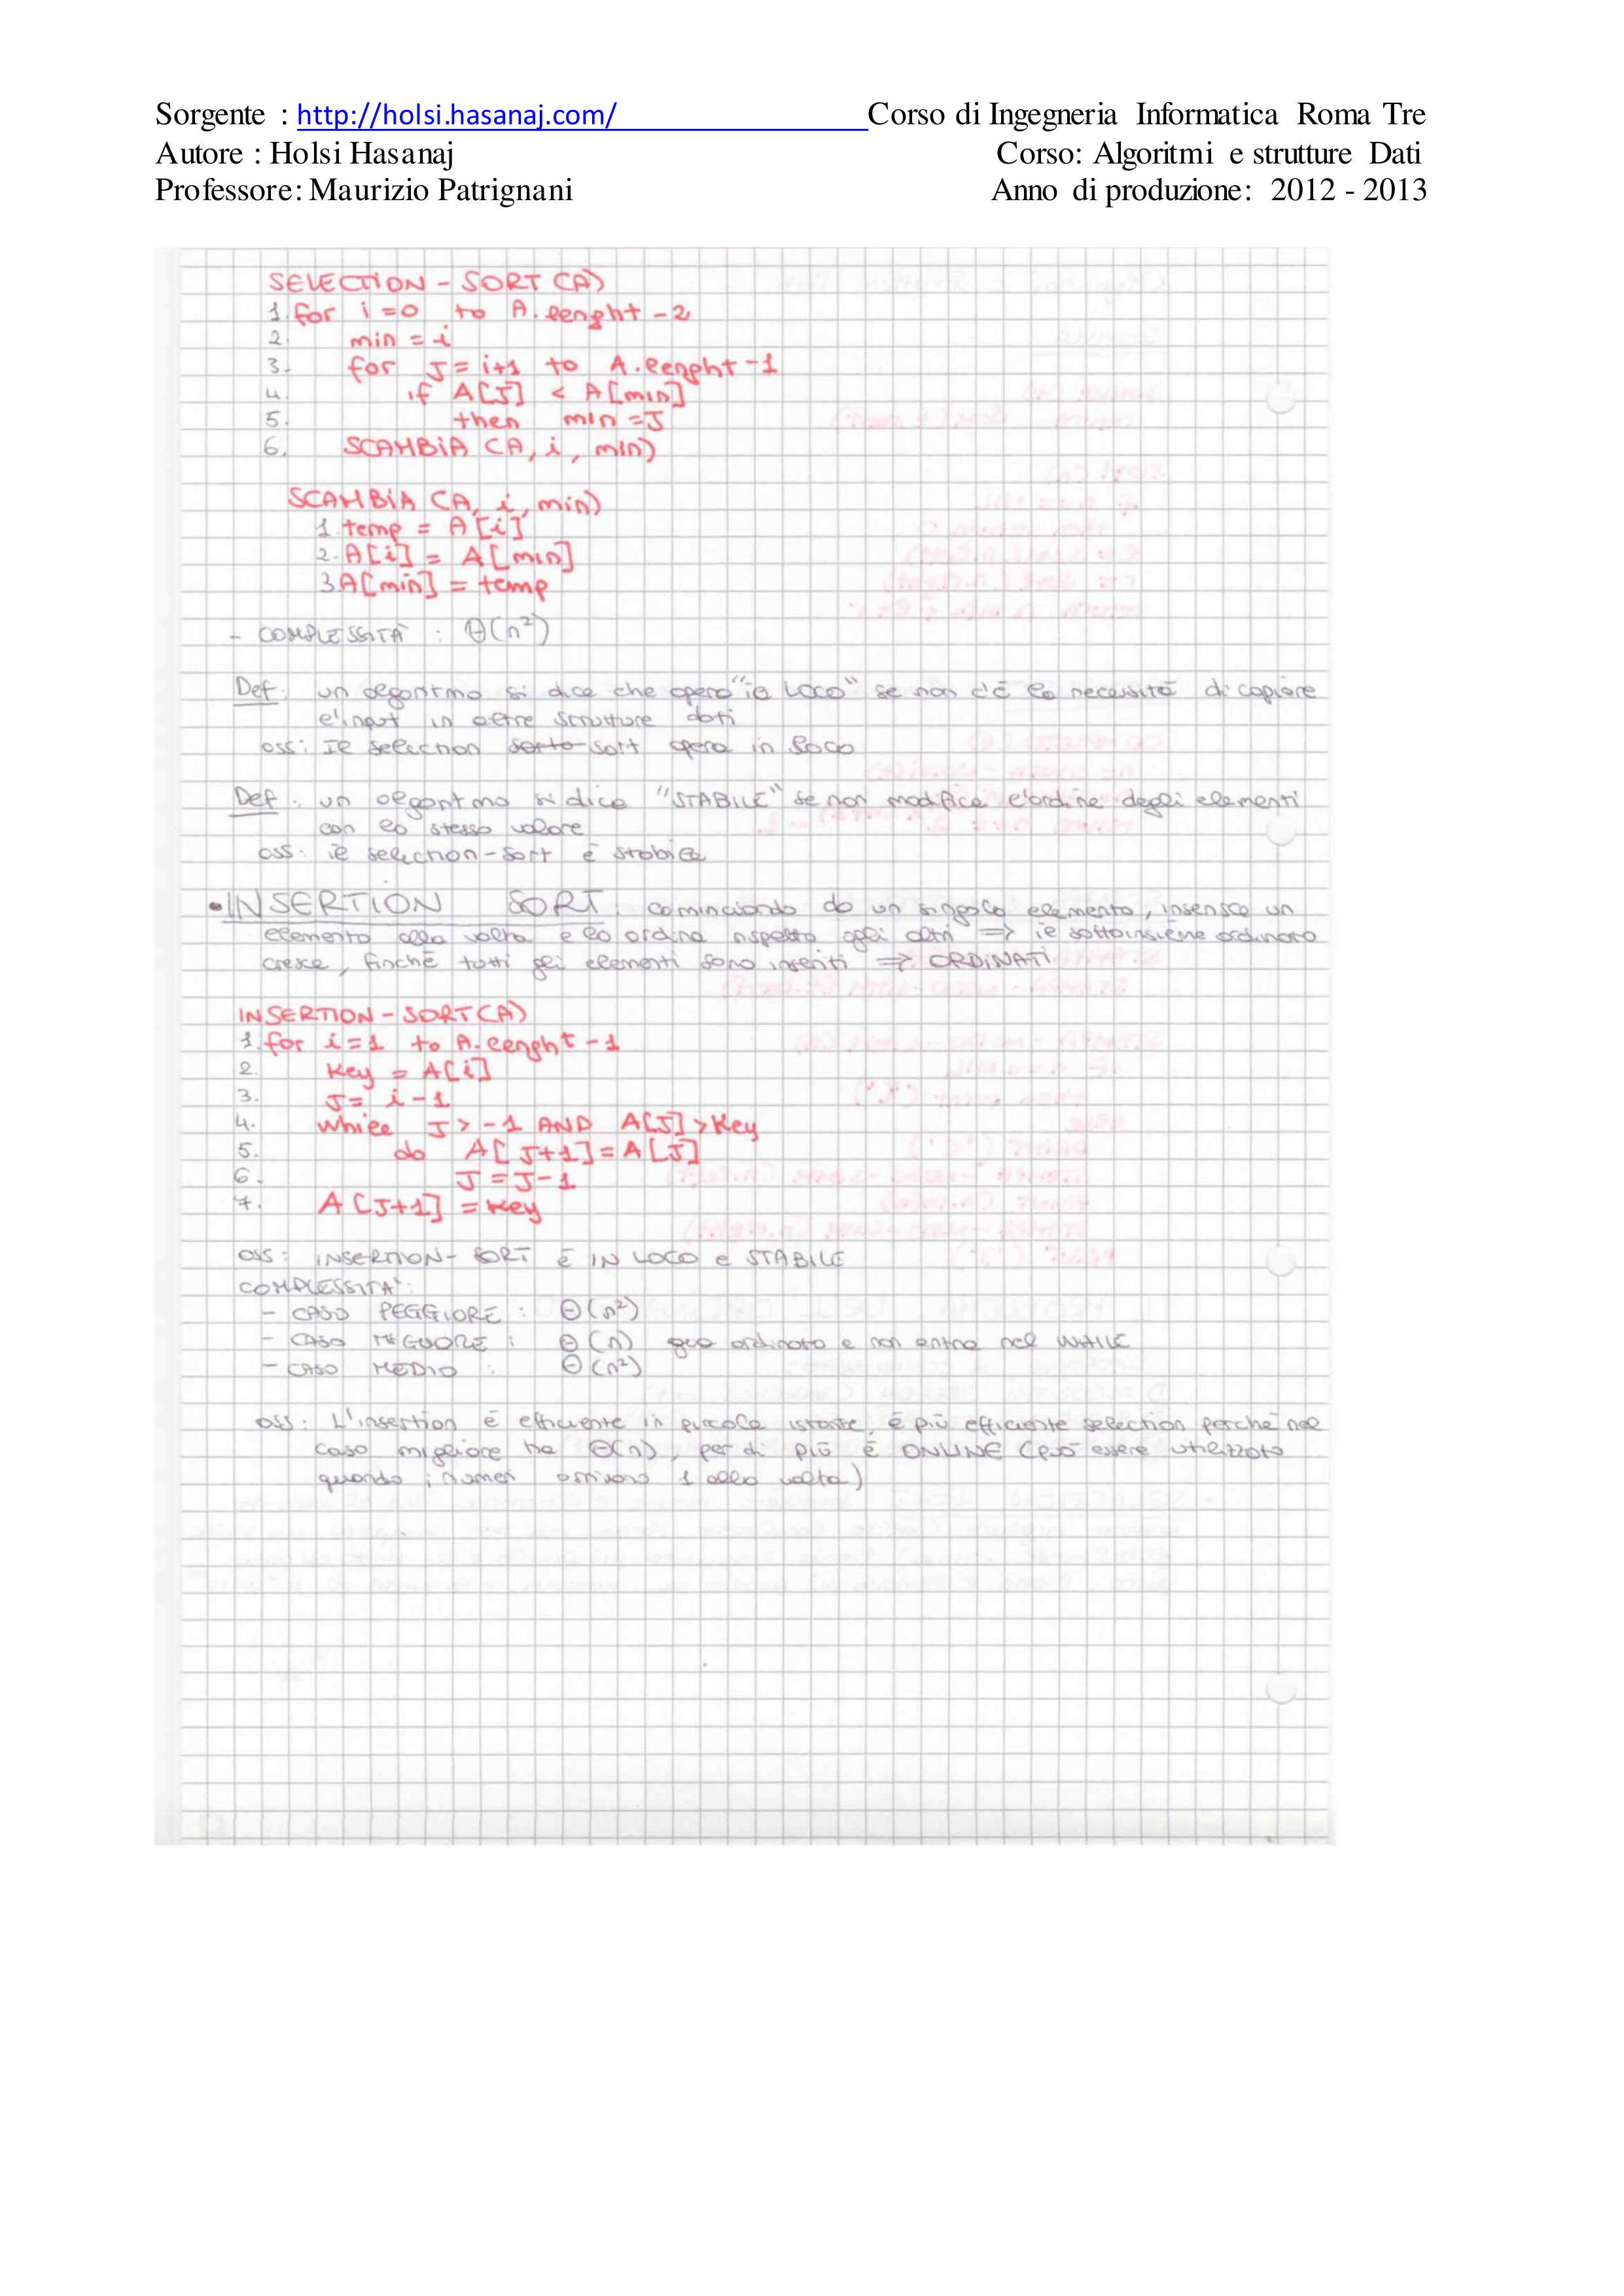 Sorgente : http://holsi.hasanaj.com/ Corso di Ingegneria Informatica Roma Tre
Autore : Holsi Hasanaj Corso: Algoritmi e strutture Dati
Professore: Maurizio Patrignani Anno di produzione: 2012 - 2013
SELECTION - SORT (A)
1. for i = 0 to A. lenght - 2
2. min = i
3. for J = i+1 to A. lenght - 1
4. if A[J] < A[min]
5. then min = J
6. SCAMBIA (A, i, min)
SCAMBIA (A, i, min)
1. temp = A[i]
2. A[i] = A[min]
3 A[min] = temp
- COMPLESSITÀ : Θ(n²)
Def: un algoritmo si dice che opera "in LOCO" se non c'è la necessità di copiare
l'input in altre strutture dati
oss: Il selection sorto sort opera in loco
Def: un algoritmo si dice "STABILE" se non modifica l'ordine degli elementi
con lo stesso valore
oss: il selection-sort è stabile
• INSERTION SORT: cominciando da un singolo elemento, inserisce un
elemento alla volta e lo ordina rispetto agli altri => il sottoinsieme ordinato
cresce, finchè tutti gli elementi sono inseriti => ORDINATI
INSERTION - SORT (A)
1. for i = 1 to A. lenght - 1
2. Key = A[i]
3. J = i - 1
4. while J > -1 AND A[J] > Key
5. do A[J+1] = A[J]
6. J = J-1
7. A[J+1] = Key
oss: INSERTION- SORT È IN LOCO e STABILE
COMPLESSITA':
- CASO PEGGIORE : Θ(n²)
- CASO MIGLIORE : Θ(n) ordinato e non entra nel WHILE
- CASO MEDIO : Θ(n²)
oss: L'insertion è efficiente in piccole istanze, è più efficiente selection perchè nel
caso migliore ha Θ(n), per di più è ONLINE (può essere utilizzato
quando i numeri arrivano 1 alla volta)